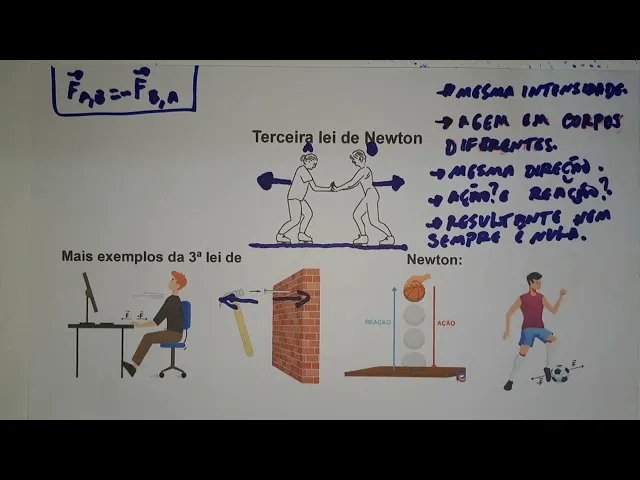 F A,B = -F B,A
→ MESMA INTENSIDADE.
→ AGEM EM CORPOS
DIFERENTES.
→ MESMA DIREÇÃO.
→ AÇÃO? E REAÇÃO?
→ RESULTANTE NEM
SEMPRE É NULA.
Terceira lei de Newton
A B
Mais exemplos da 3ª lei de Newton:
REAÇÃO AÇÃO